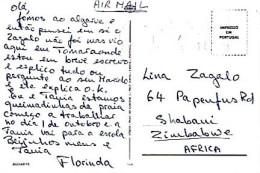 AIR MAIL
Olá,
fomos ao algarve e
então pensei em si o
Zagalo não foi mas viu
aqui em
estou em breve escrevo
e explico tudo ou
pergunte ao seu Marido
e ele explica o.k.
Eu e Tania estamos
queimadinhas da praia
começo a trabalhar
no dia 1 de outubro e a
Tania vai para a escola
Beijinhos meus e
Tania
Florinda
IMPRESSO
EM
PORTUGAL
Lina Zagalo
64 Papenfus Rd
Shabani
Zimbabwe
AFRICA